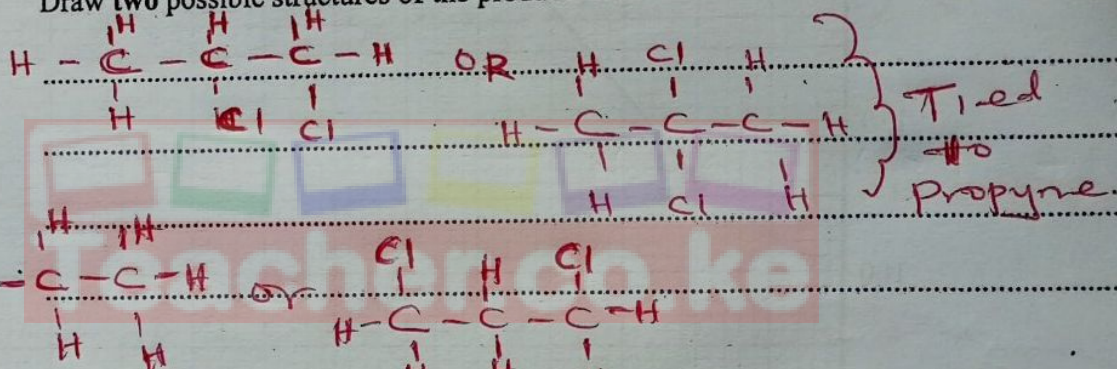 Draw two possible structures of the
H H H
H - C - C - C - H OR H Cl H
H Cl Cl H - C - C - C - H
H Cl H
Tied
to
propyne
H H Cl H Cl
- C - C - H or H - C - C - C - H
H H
Teacher.co.ke